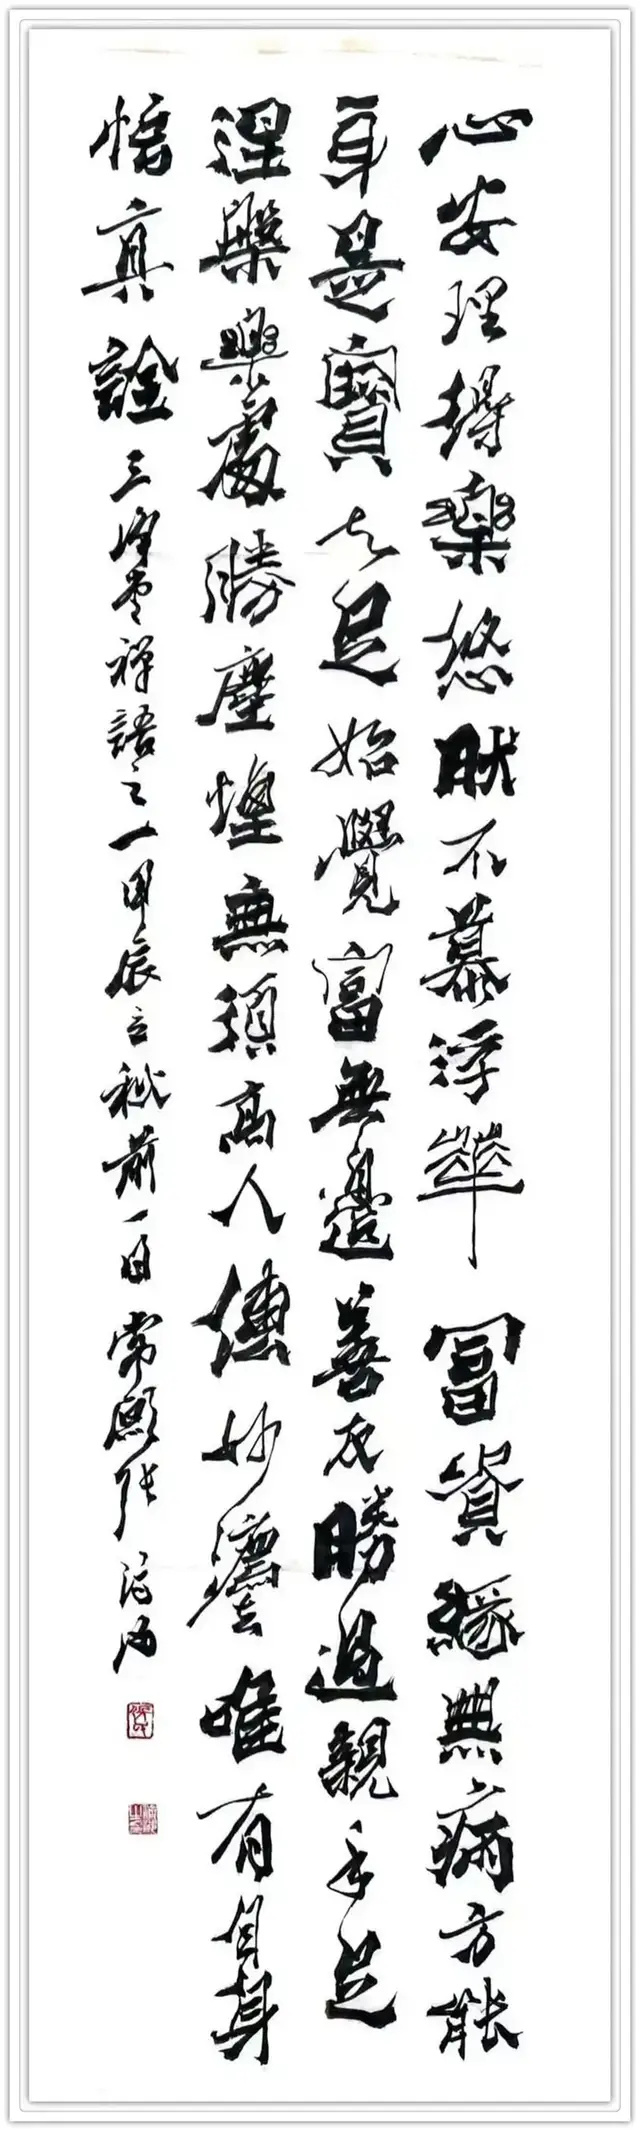 心安理得樂悠肰不慕浮華冨貴緣無病方能
身是寶知足始覺富無邊善友勝過親手足
涅槃樂處勝塵煙無須高人傳妙灋唯有自身
悟真詮 三淨堂禪語之一甲辰立秋前一日常愿张